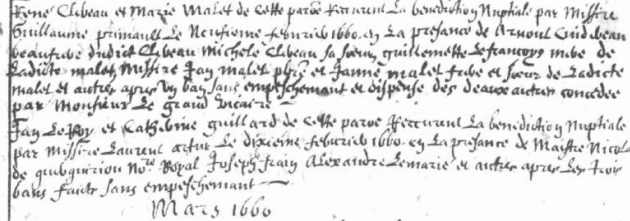 René Clibeau et Marie Malet de cette parve Receurent La benediction Nuptiale par Missire
Guillaume primault Le Neufiesme febvrier 1660 en La presance de Arnoul
beaufrere dudict Clibeau Michele Clibeau sa sœur guillemette Lefrançoys mere de
Ladicte malet Missire Jan malet pbre et Janne malet frere et sœur de Ladicte
malet et autres apres un ban sans empeschemant et dispense des deux autres concedee
par Monsieur Le grand vicaire
Jan Le Roy et Catherine guillard de cette parve Receurent La benediction Nuptiale
par Missire Laurent artur Le dixiesme febvrier 1660 en La presance de Maistre Nicolas
de No.re Royal Joseph frain Alexandre Lemarie et autres apres Les trois
bans faicts sans empeschemant
Mars 1660